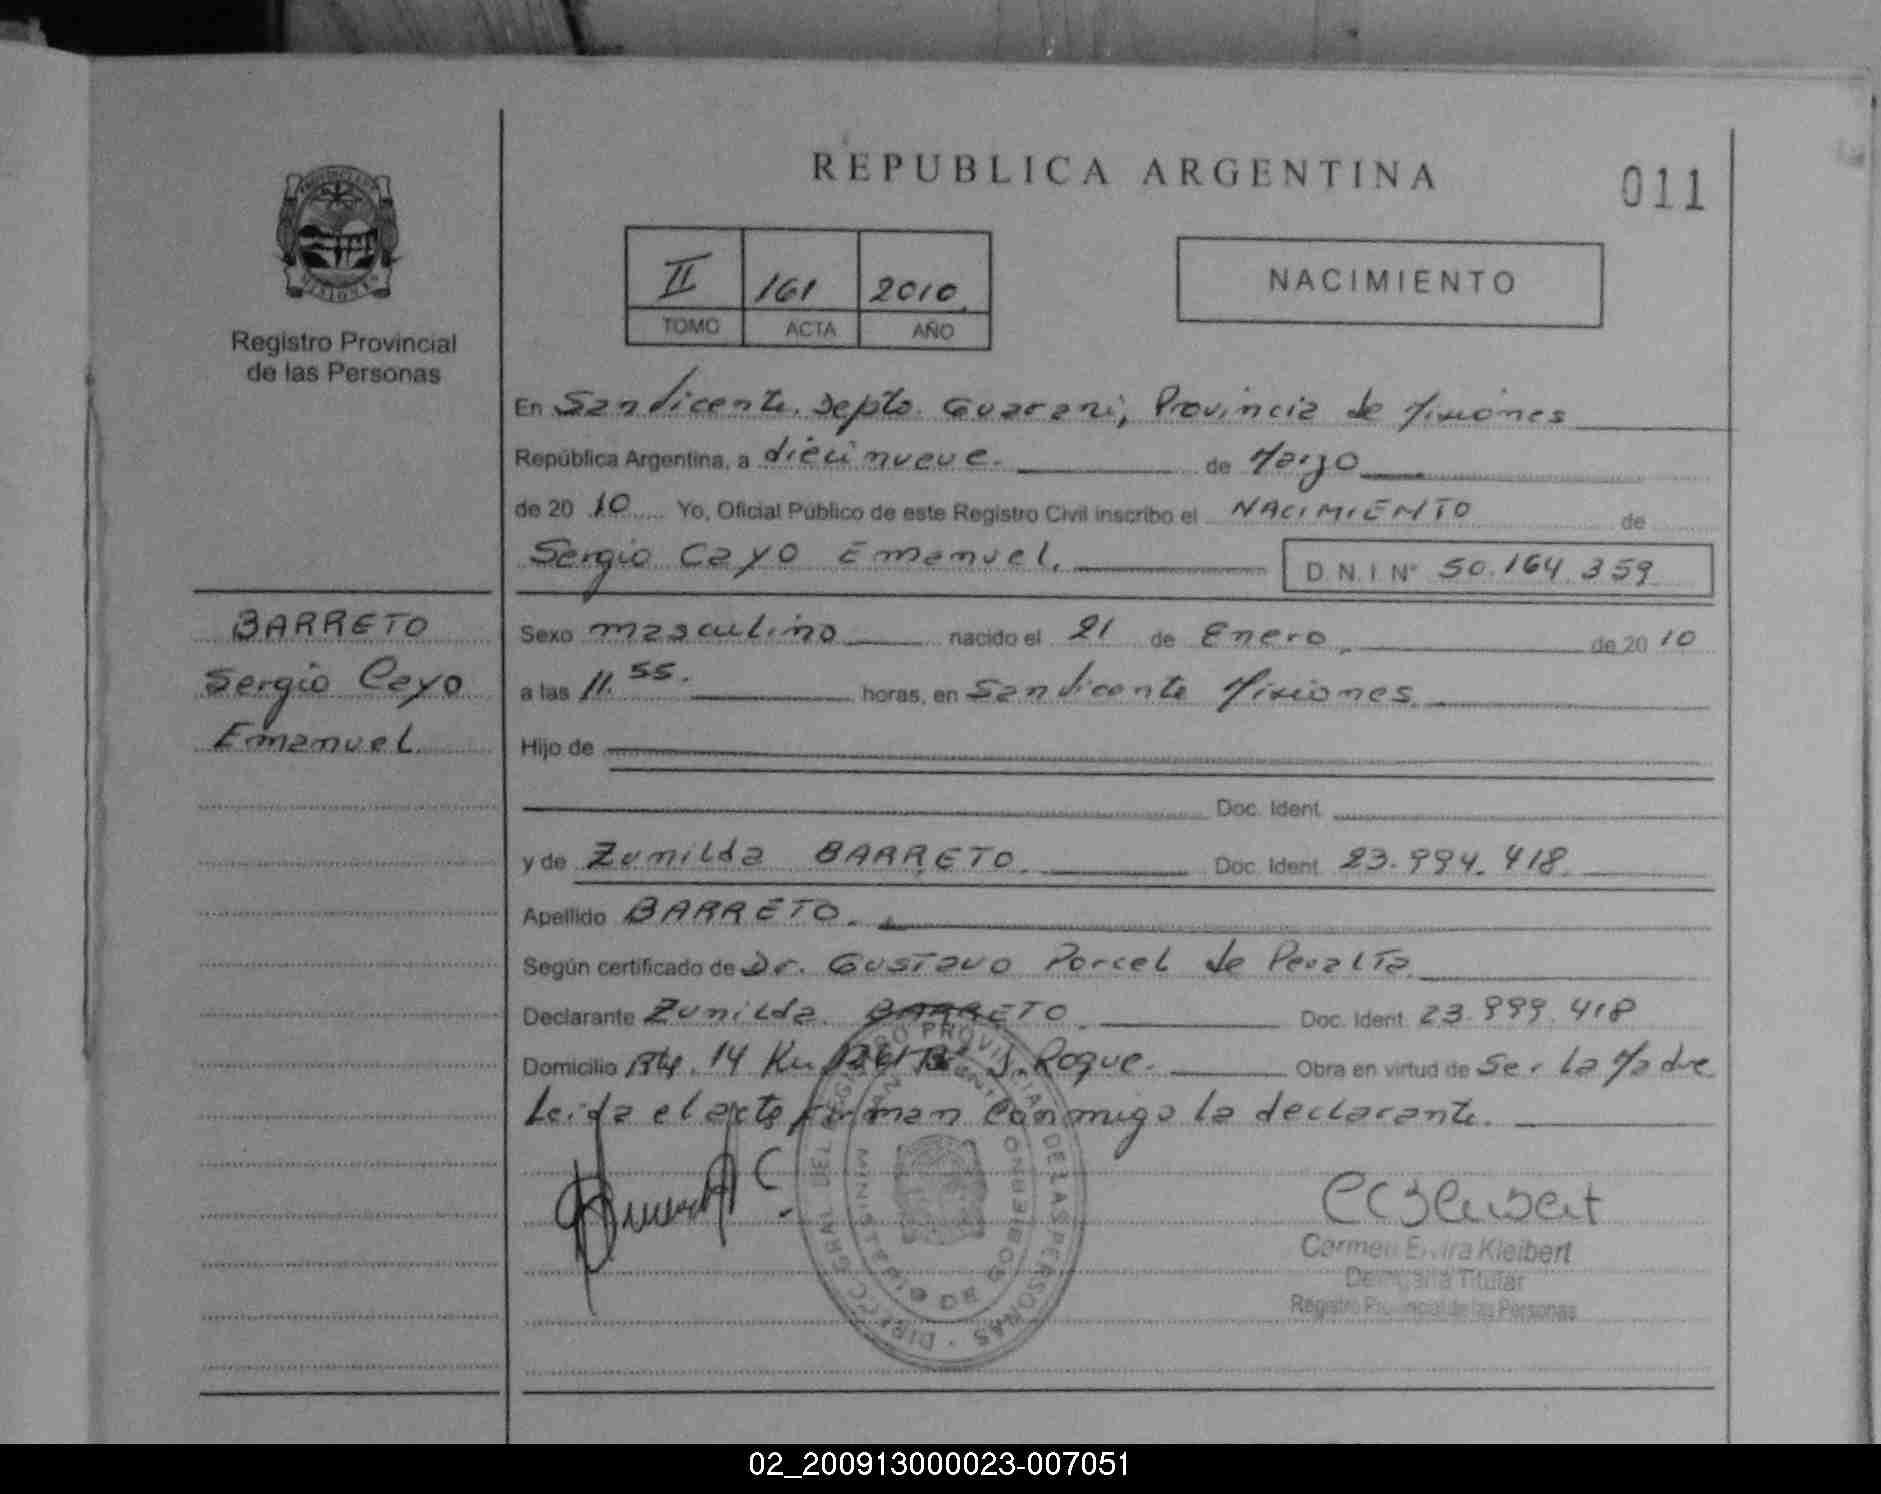 REPUBLICA ARGENTINA
011
II 161 2010
TOMO ACTA AÑO
NACIMIENTO
Registro Provincial
de las Personas
En San Vicente. Depto. Guarani, Provincia de Misiones
República Argentina, a diecinueve. de Marzo
de 20 10 Yo, Oficial Público de este Registro Civil inscribo el NACIMIENTO de
Sergio Cayo Emanuel. D.N.I Nº 50.164.359
BARRETO
Sergio Cayo
Emanuel.
Sexo masculino nacido el 21 de Enero de 20 10
a las 11.55. horas, en San Vicente Misiones.
Hijo de
Doc. Ident.
y de Zunilda BARRETO. Doc. Ident. 23.994.418.
Apellido BARRETO.
Según certificado de Dr. Gustavo Porcel de Peralta.
Declarante Zunilda BARRETO. Doc. Ident. 23.999.418
Domicilio 14 Km S. Roque. Obra en virtud de Ser La Madre
Leida el acta firman conmigo la declarante.
DIRECC. GRAL. DEL REGISTRO PROVINCIAL DE LAS PERSONAS
MINISTERIO DE GOBIERNO
Carmen Elvira Kleibert
Delegada Titular
Registro Provincial de las Personas
02_200913000023-007051